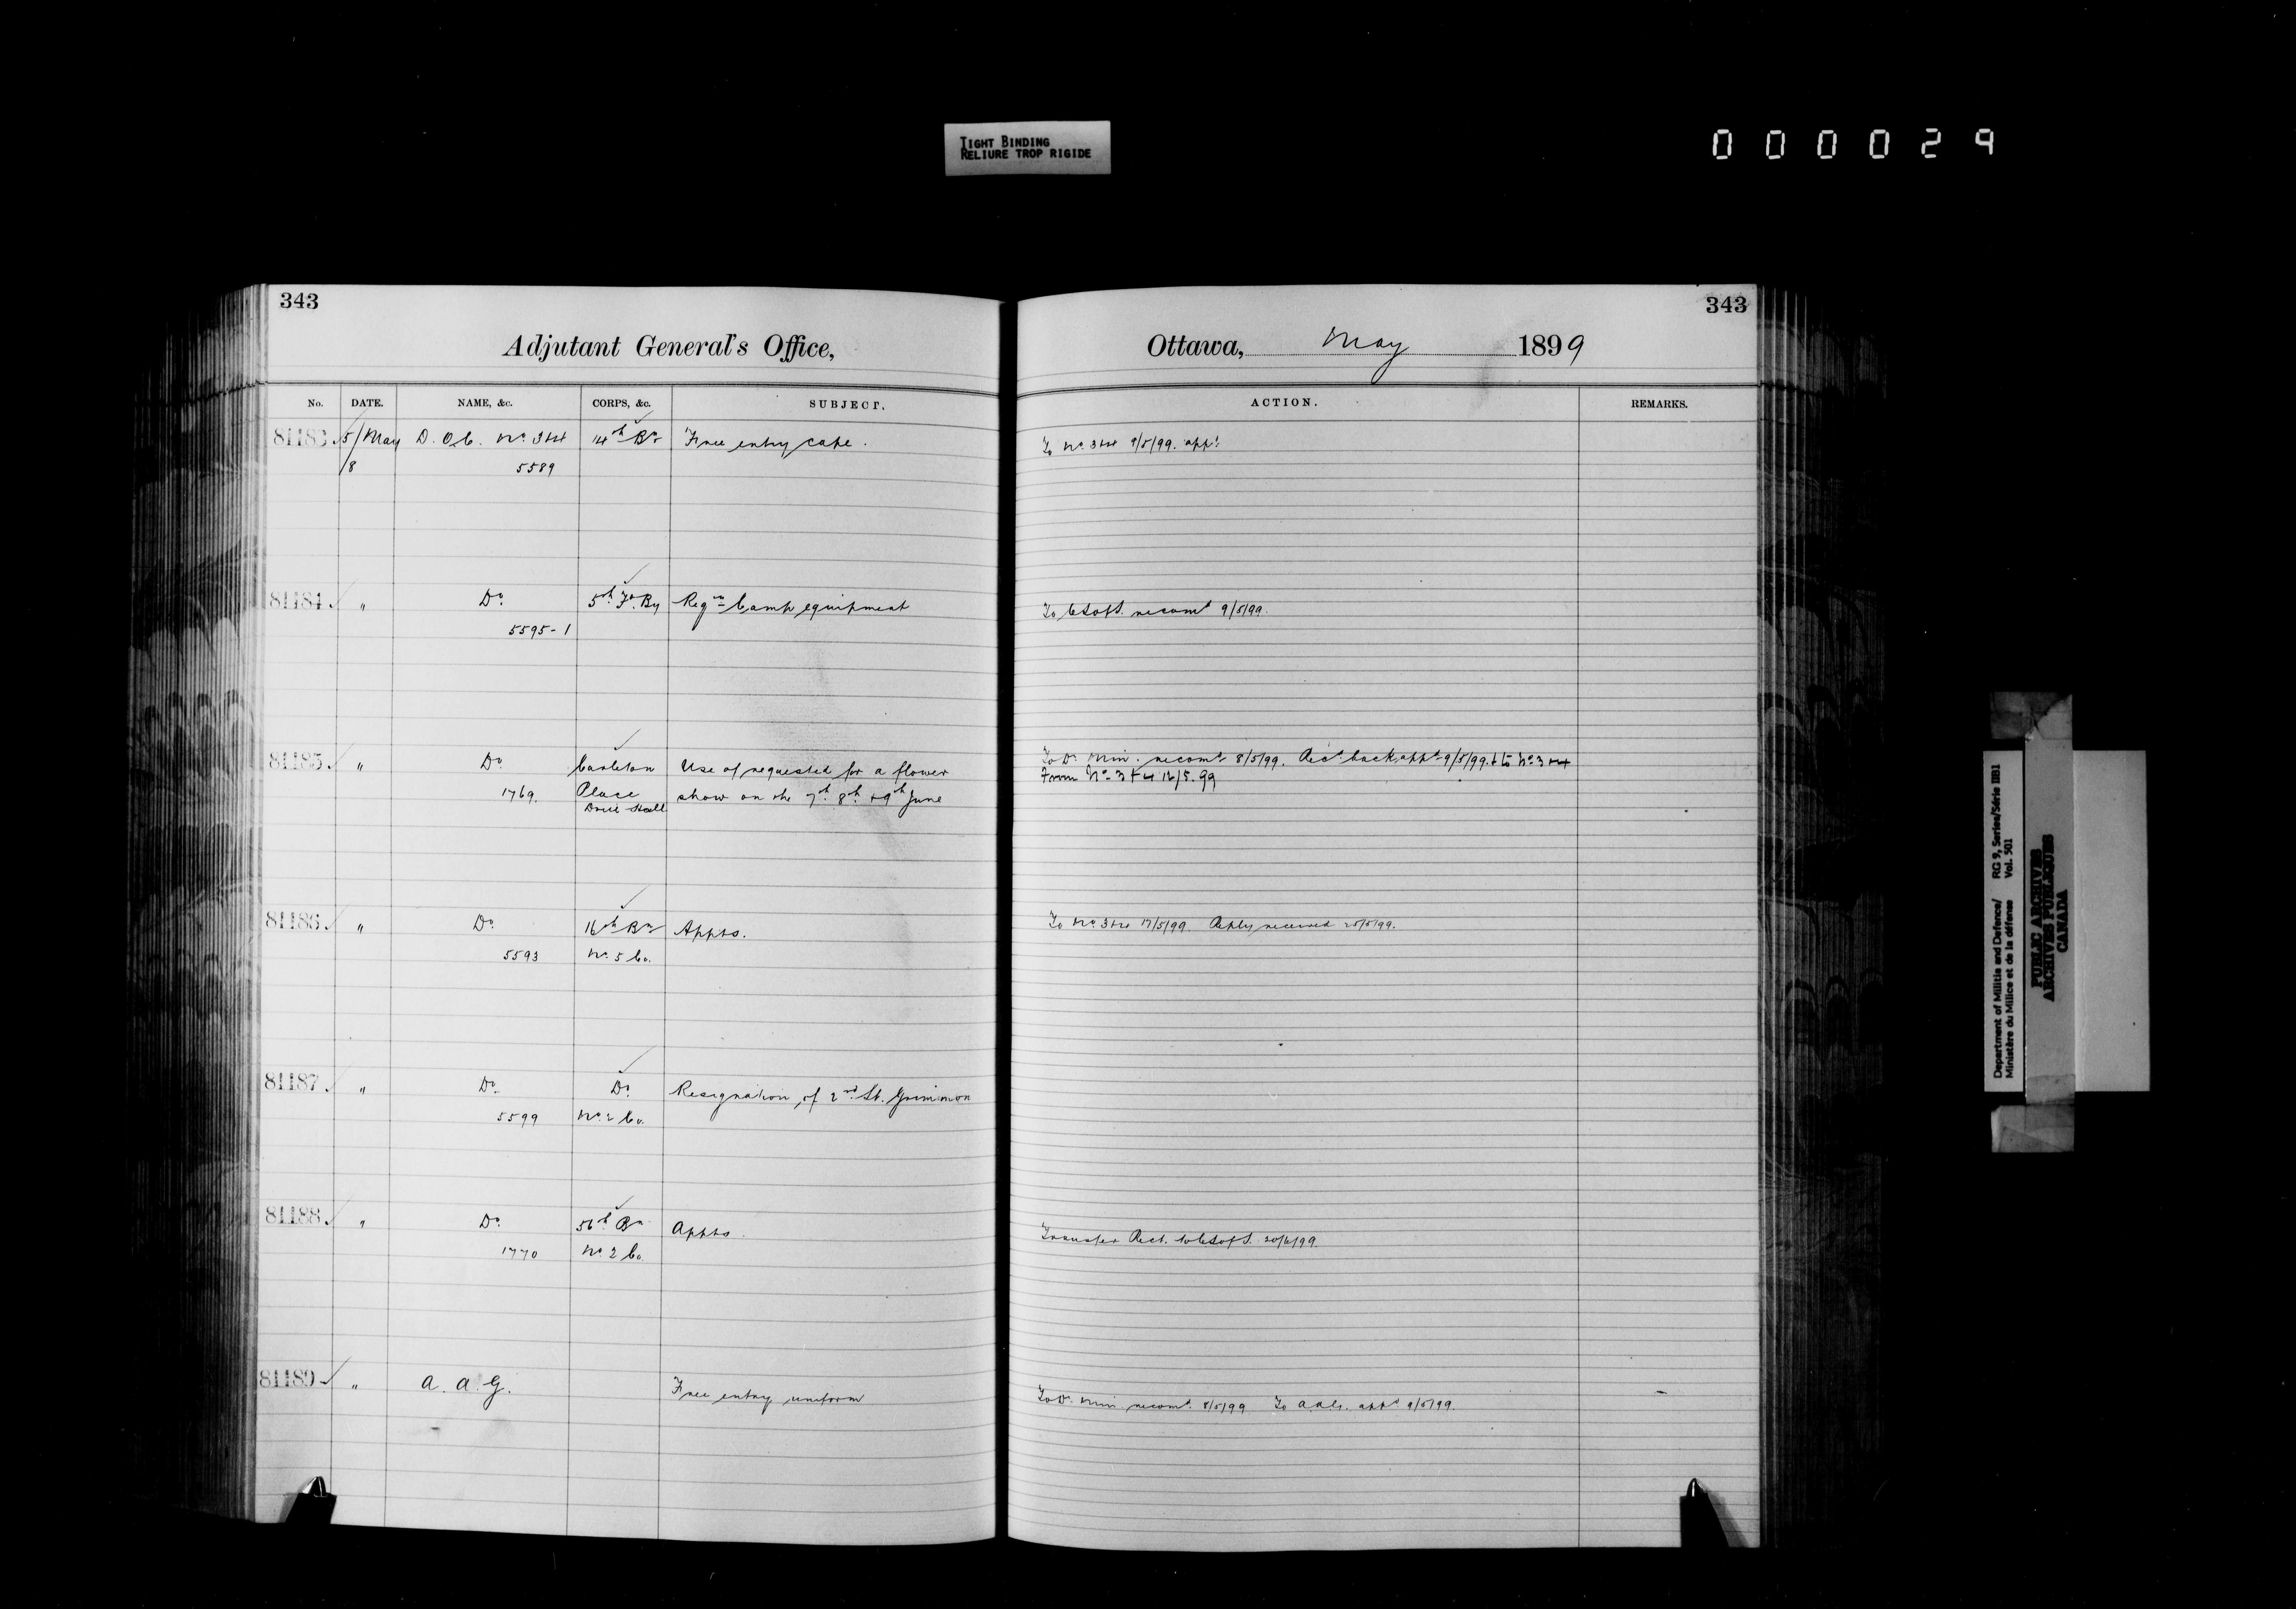 TIGHT BINDING
RELIURE TROP RIGIDE
000029
343
Adjutant General's Office,
No. DATE. NAME, &c. CORPS, &c. SUBJECT.
81183 5/May D.O.C. No. 3+4 14th Bn Free entry cape.
/8 5589
81184 " Do. 5th Fd. By Reqn Camp equipment
5595-1
81185 " Do. Carleton Use of requested for a flower
1769. Place show on the 7th 8th + 9th June
Drill Hall
81186 " Do. 16th Bn Appts.
5593 No. 5 Co.
81187 " Do. Do. Resignation of 2nd Lt. Grimmon
5599 No. 2 Co.
81188 " Do. 56th Bn Appts.
1770 No. 2 Co.
81189 " A.A.G. Free entry uniform
343
Ottawa, May 1899
ACTION. REMARKS.
To No. 3+4 9/5/99. appd.
To C S of S. recomd 9/5/99.
To D. Min. recomd 8/5/99. Recd back appd 9/5/99. + to No 3+4
From No 3+4 16/5.99
To No. 3+4 17/5/99. Reply received 25/5/99.
Transfer Rect. to C S of S. 20/6/99.
To D. Min recomd. 8/5/99 To A.A.G. appd 9/5/99.
Department of Militia and Defence/ RG 9, Series/Série IIB1
Ministère du Milice et de la défense Vol. 501
PUBLIC ARCHIVES
ARCHIVES PUBLIQUES
CANADA